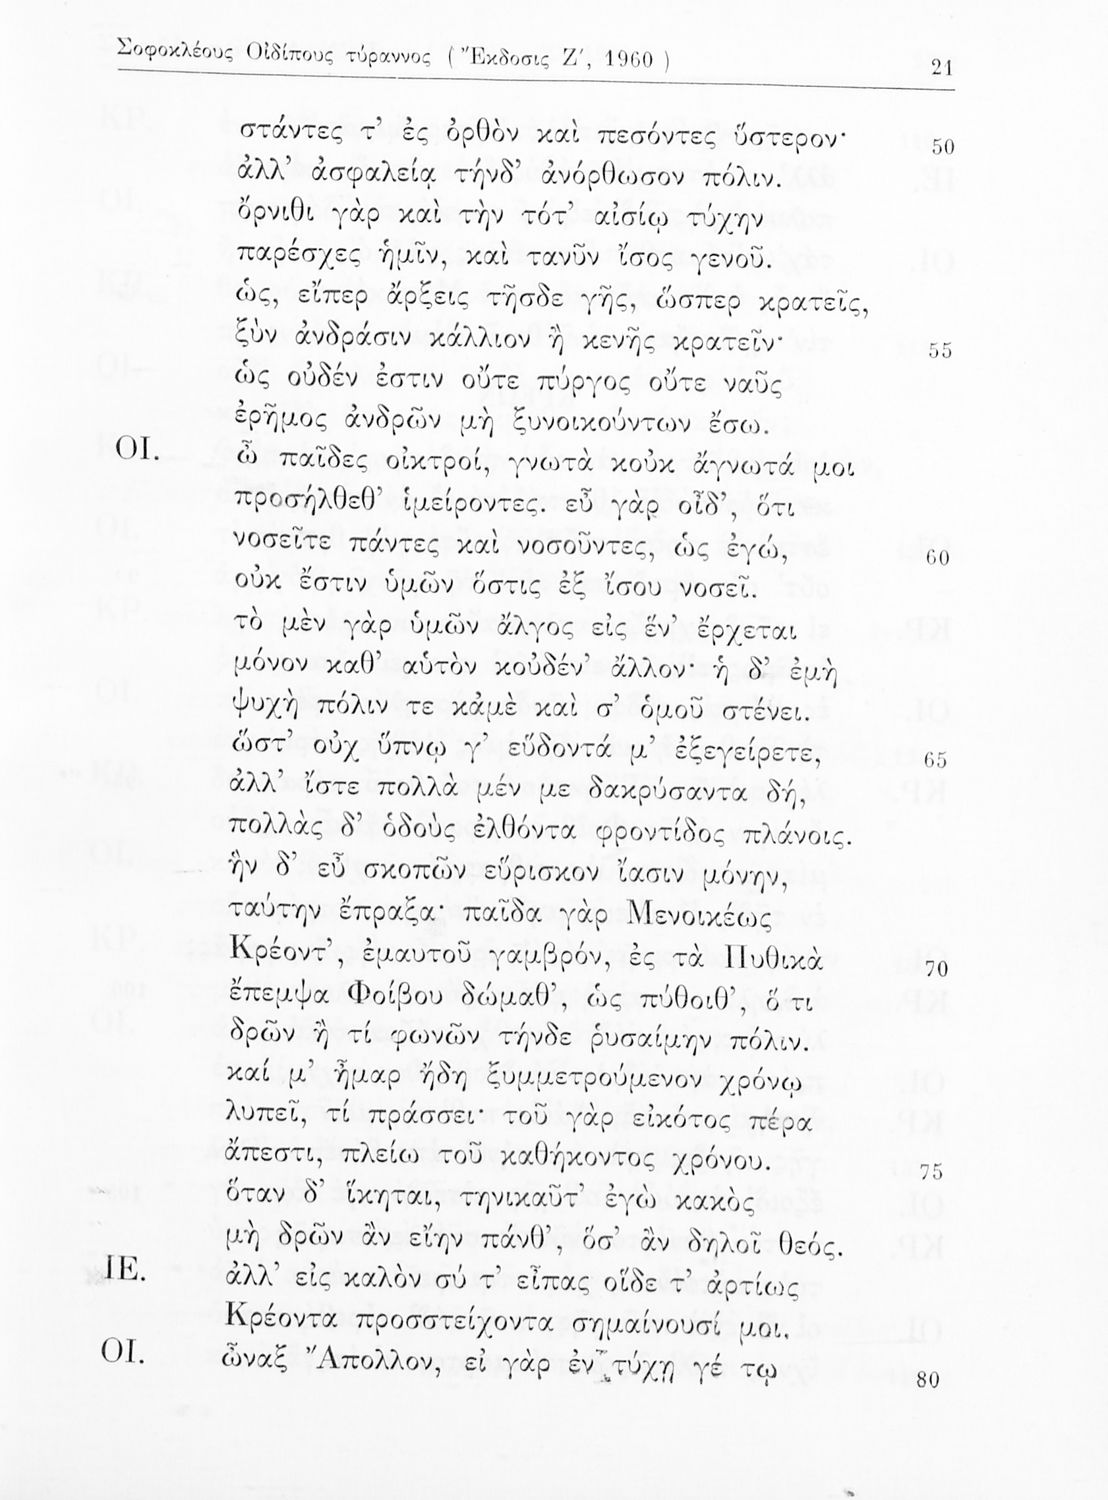 Σοφοκλέους Οἰδίπους τύραννος ( Ἔκδοσις Ζ', 1960 ) 21
στάντες τ’ ἐς ὀρθὸν καὶ πεσόντες ὕστερον· 50
ἀλλ’ ἀσφαλείᾳ τήνδ’ ἀνόρθωσον πόλιν.
ὄρνιθι γὰρ καὶ τὴν τότ’ αἰσίῳ τύχην
παρέσχες ἡμῖν, καὶ τανῦν ἴσος γενοῦ.
ὡς, εἴπερ ἄρξεις τῆσδε γῆς, ὥσπερ κρατεῖς,
ξὺν ἀνδράσιν κάλλιον ἢ κενῆς κρατεῖν· 55
ὡς οὐδέν ἐστιν οὔτε πύργος οὔτε ναῦς
ἐρῆμος ἀνδρῶν μὴ ξυνοικούντων ἔσω.
ΟΙ. ὦ παῖδες οἰκτροί, γνωτὰ κοὐκ ἄγνωτά μοι
προσήλθεθ’ ἱμείροντες. εὖ γὰρ οἶδ’, ὅτι
νοσεῖτε πάντες καὶ νοσοῦντες, ὡς ἐγώ, 60
οὐκ ἔστιν ὑμῶν ὅστις ἐξ ἴσου νοσεῖ.
τὸ μὲν γὰρ ὑμῶν ἄλγος εἰς ἕν’ ἔρχεται
μόνον καθ’ αὑτὸν κοὐδέν’ ἄλλον· ἡ δ’ ἐμὴ
ψυχὴ πόλιν τε κἀμὲ καὶ σ’ ὁμοῦ στένει.
ὥστ’ οὐχ ὕπνῳ γ’ εὕδοντά μ’ ἐξεγείρετε, 65
ἀλλ’ ἴστε πολλὰ μέν με δακρύσαντα δή,
πολλὰς δ’ ὁδοὺς ἐλθόντα φροντίδος πλάνοις.
ἣν δ’ εὖ σκοπῶν εὕρισκον ἴασιν μόνην,
ταύτην ἔπραξα· παῖδα γὰρ Μενοικέως
Κρέοντ’, ἐμαυτοῦ γαμβρόν, ἐς τὰ Πυθικὰ 70
ἔπεμψα Φοίβου δώμαθ’, ὡς πύθοιθ’, ὅ τι
δρῶν ἢ τί φωνῶν τήνδε ῥυσαίμην πόλιν.
καί μ’ ἦμαρ ἤδη ξυμμετρούμενον χρόνῳ
λυπεῖ, τί πράσσει· τοῦ γὰρ εἰκότος πέρα
ἄπεστι, πλείω τοῦ καθήκοντος χρόνου. 75
ὅταν δ’ ἵκηται, τηνικαῦτ’ ἐγὼ κακὸς
μὴ δρῶν ἂν εἴην πάνθ’, ὅσ’ ἂν δηλοῖ θεός.
ΙΕ. ἀλλ’ εἰς καλὸν σύ τ’ εἶπας οἵδε τ’ ἀρτίως
Κρέοντα προσστείχοντα σημαίνουσί μοι.
ΟΙ. ὦναξ Ἄπολλον, εἰ γὰρ ἐν τύχῃ γέ τῳ 80